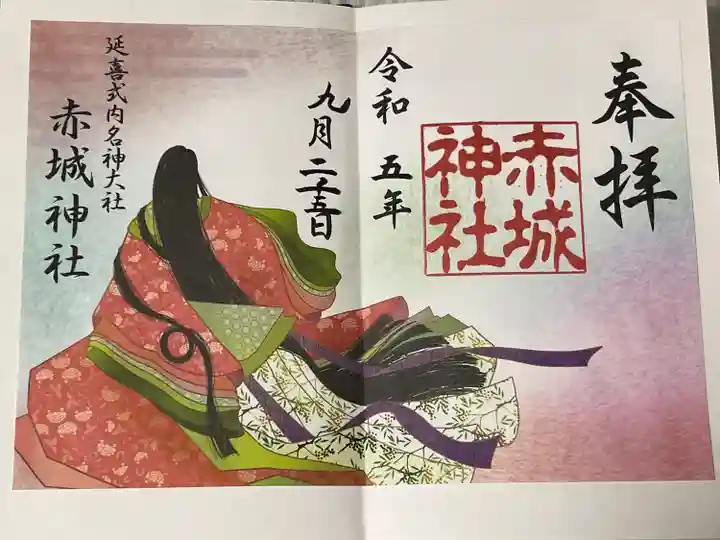 奉拝
赤城
神社
令和 五年
九月二十五日
延喜式内名神大社
赤城神社